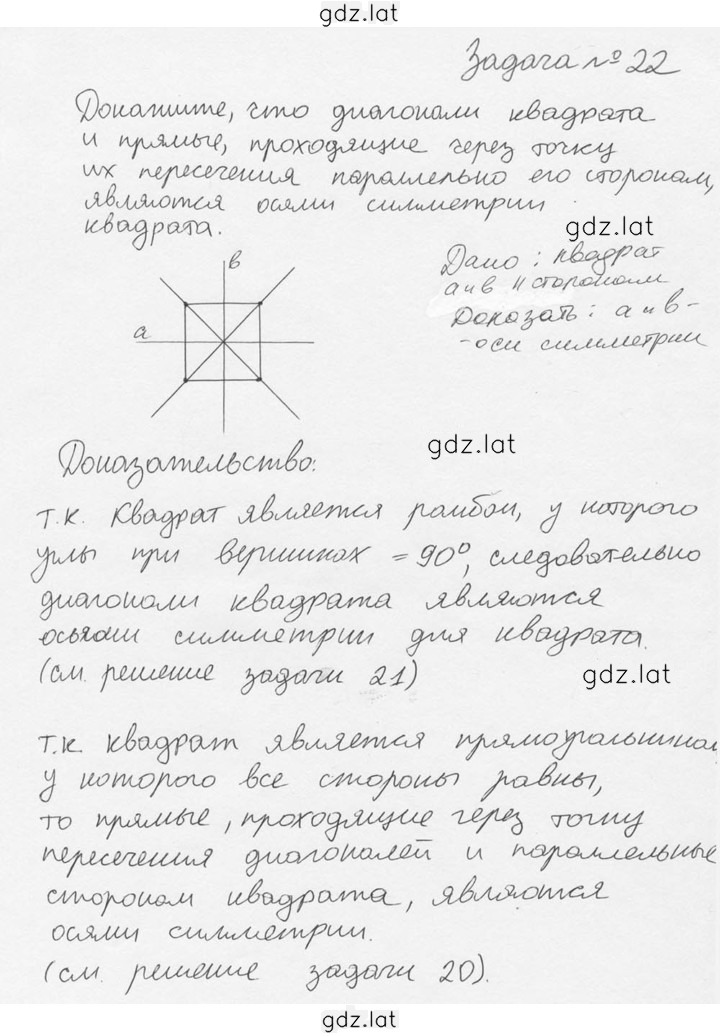 gdz.lat
Задача № 22
Докажите, что диагонали квадрата
и прямые, проходящие через точку
их пересечения параллельно его сторонам,
являются осями симметрии
квадрата.
gdz.lat
Дано: квадрат
a и b || сторонам
Доказать: a и b -
- оси симметрии
b
a
gdz.lat
Доказательство:
т.к. квадрат является ромбом, у которого
углы при вершинах = 90°, следовательно
диагонали квадрата являются
осьями симметрии для квадрата.
(см. решение задачи 21)
gdz.lat
т.к. квадрат является прямоугольником,
у которого все стороны равны,
то прямые, проходящие через точку
пересечения диагоналей и параллельные
сторонам квадрата, являются
осями симметрии.
(см. решение задачи 20).
gdz.lat